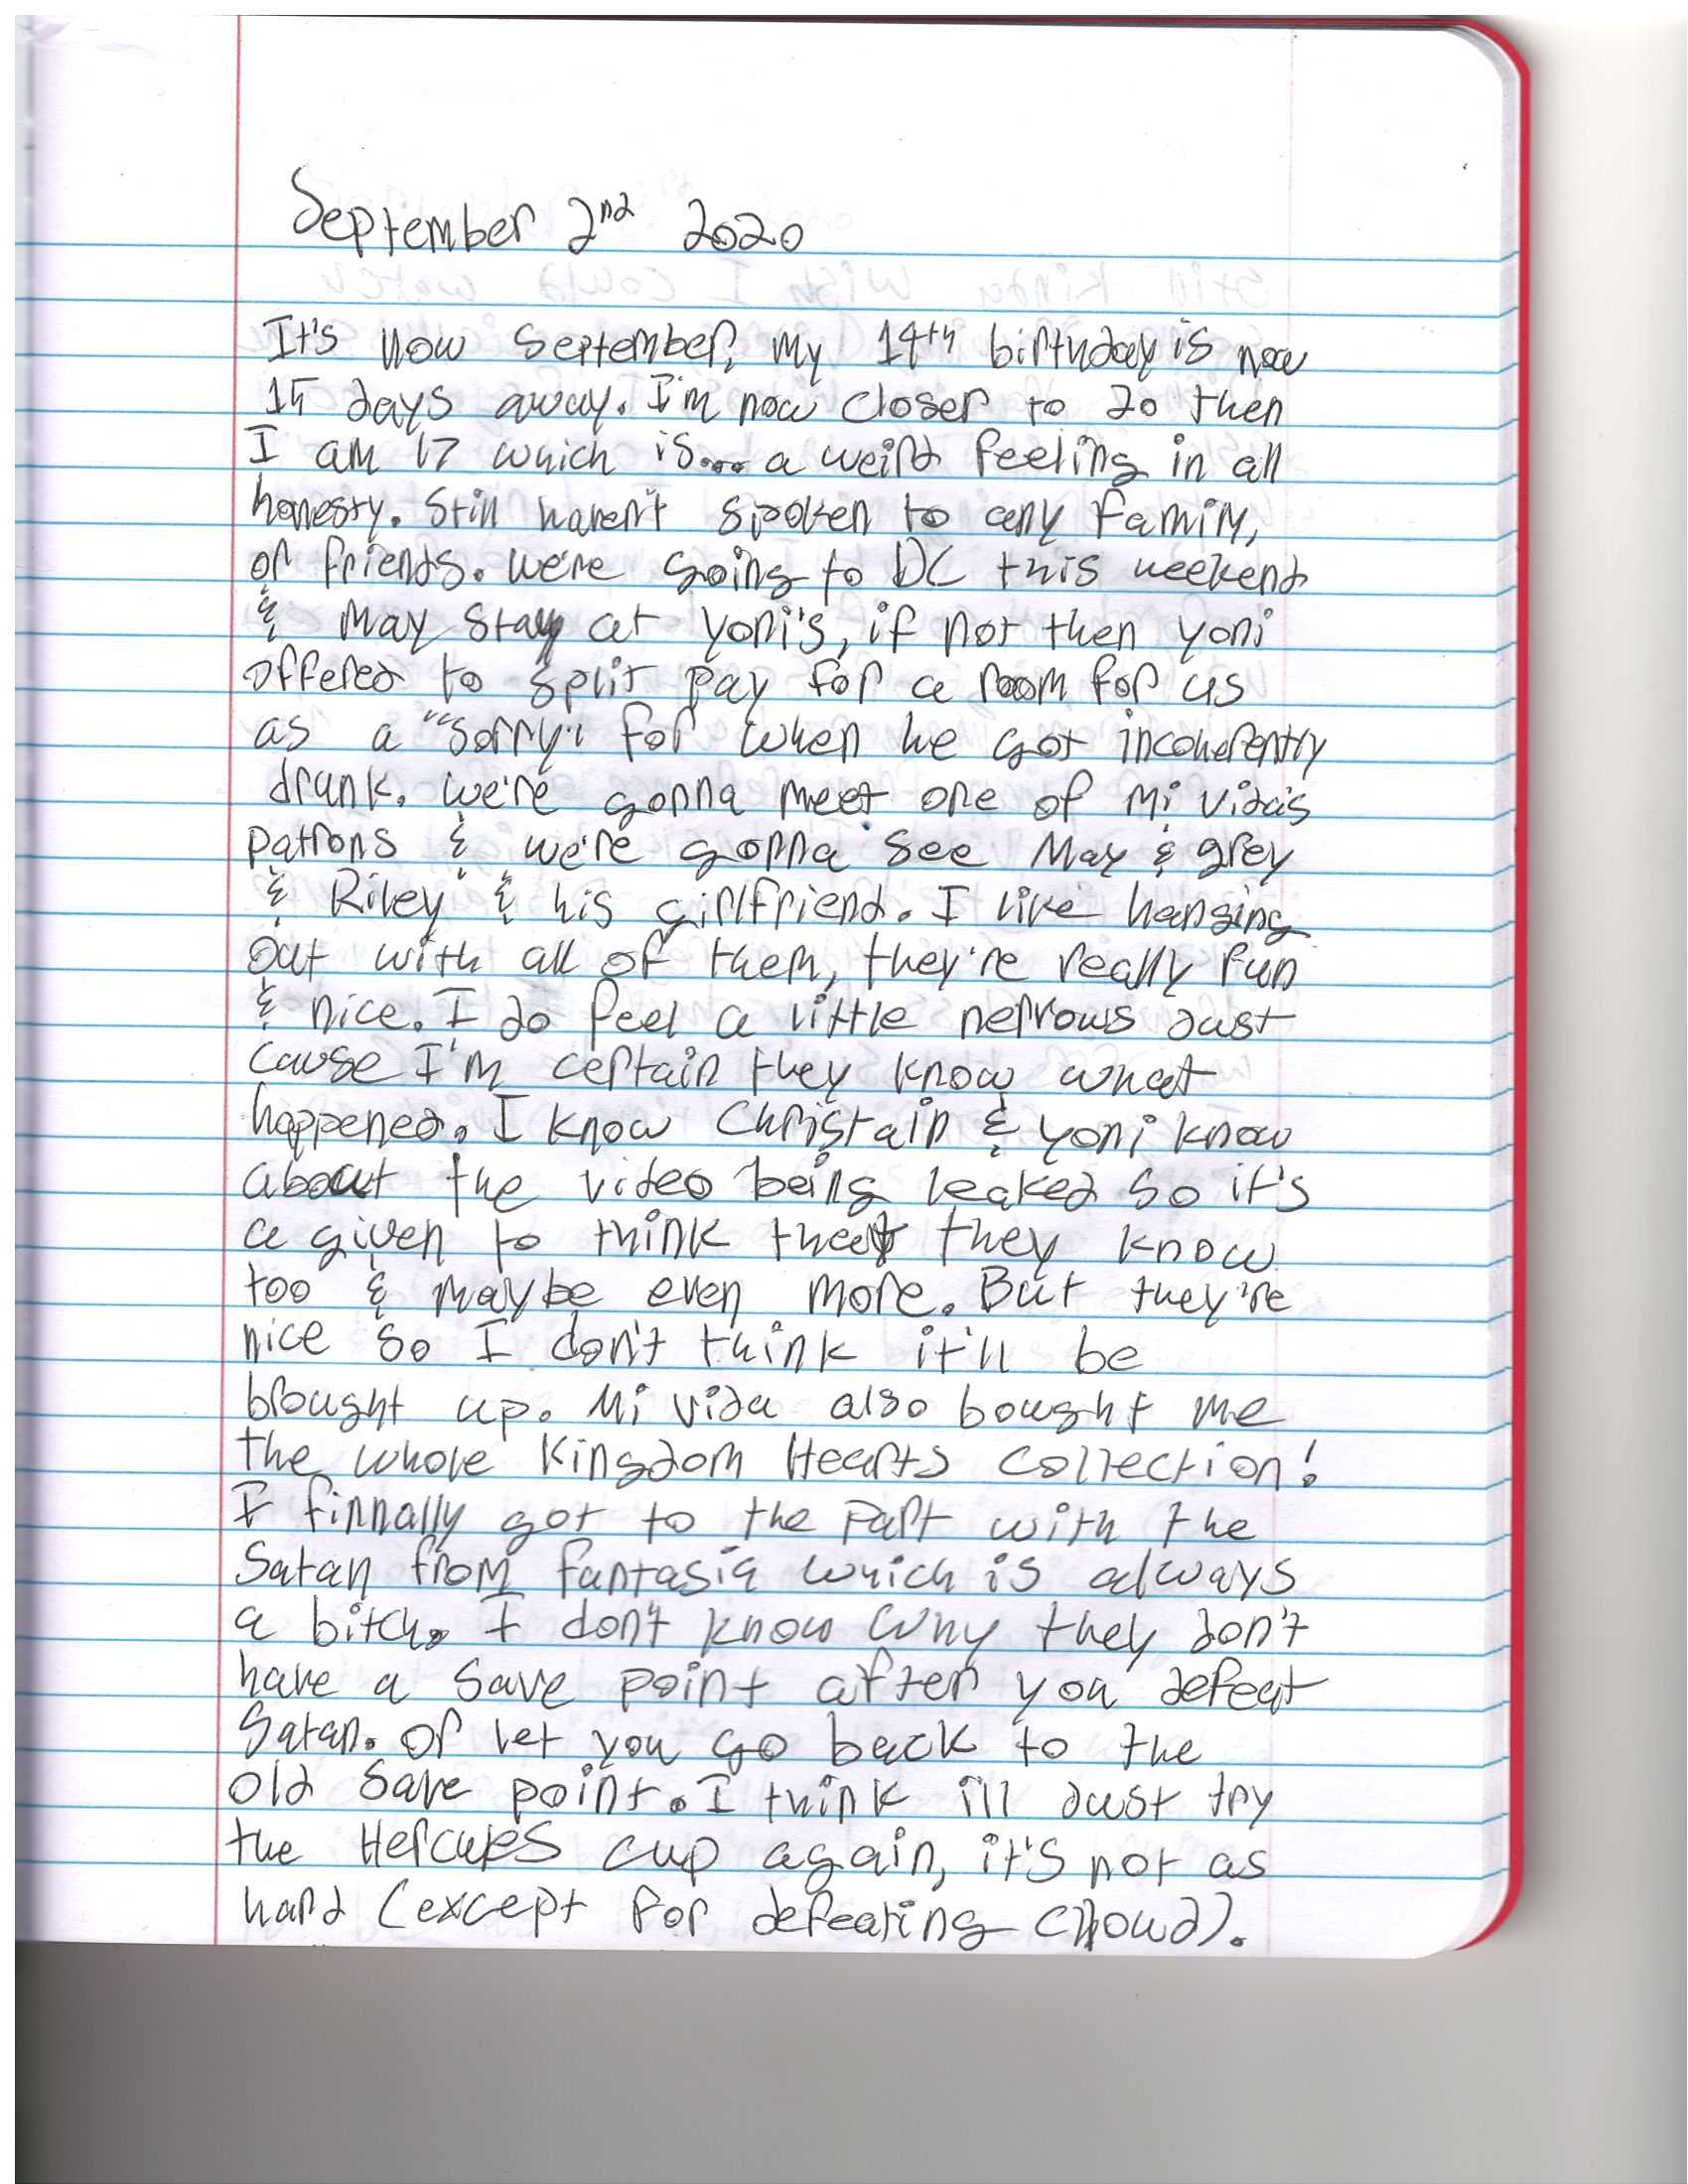 September 2nd 2020
It's now September, my 19th birthday is now
15 days away. I'm now closer to 20 then
I am 17 which is... a weird feeling in all
honesty. Still haven't spoken to any family,
or friends. We're going to DC this weekend
& may stay at Yoni's, if not then Yoni
offered to split pay for a room for us
as a "sorry" for when he got incoherently
drunk. We're gonna meet one of Mi Vida's
patrons & we're gonna see May & Grey
& Riley & his girlfriend. I like hanging
out with all of them, they're really fun
& nice. I do feel a little nervous Just
cause I'm certain they know what
happened. I know Christain & Yoni know
about the video being leaked so it's
a given to think that they know
too & maybe even more. But they're
nice so I don't think it'll be
brought up. Mi Vida also bought me
the whole Kingdom Hearts collection!
I finnally got to the part with the
Satan from Fantasia which is always
a bitch. I don't know why they don't
have a save point after you defeat
Satan. Or let you go back to the
old save point. I think ill Just try
the Hercules cup again, it's not as
hard (except for defeating Clowd).